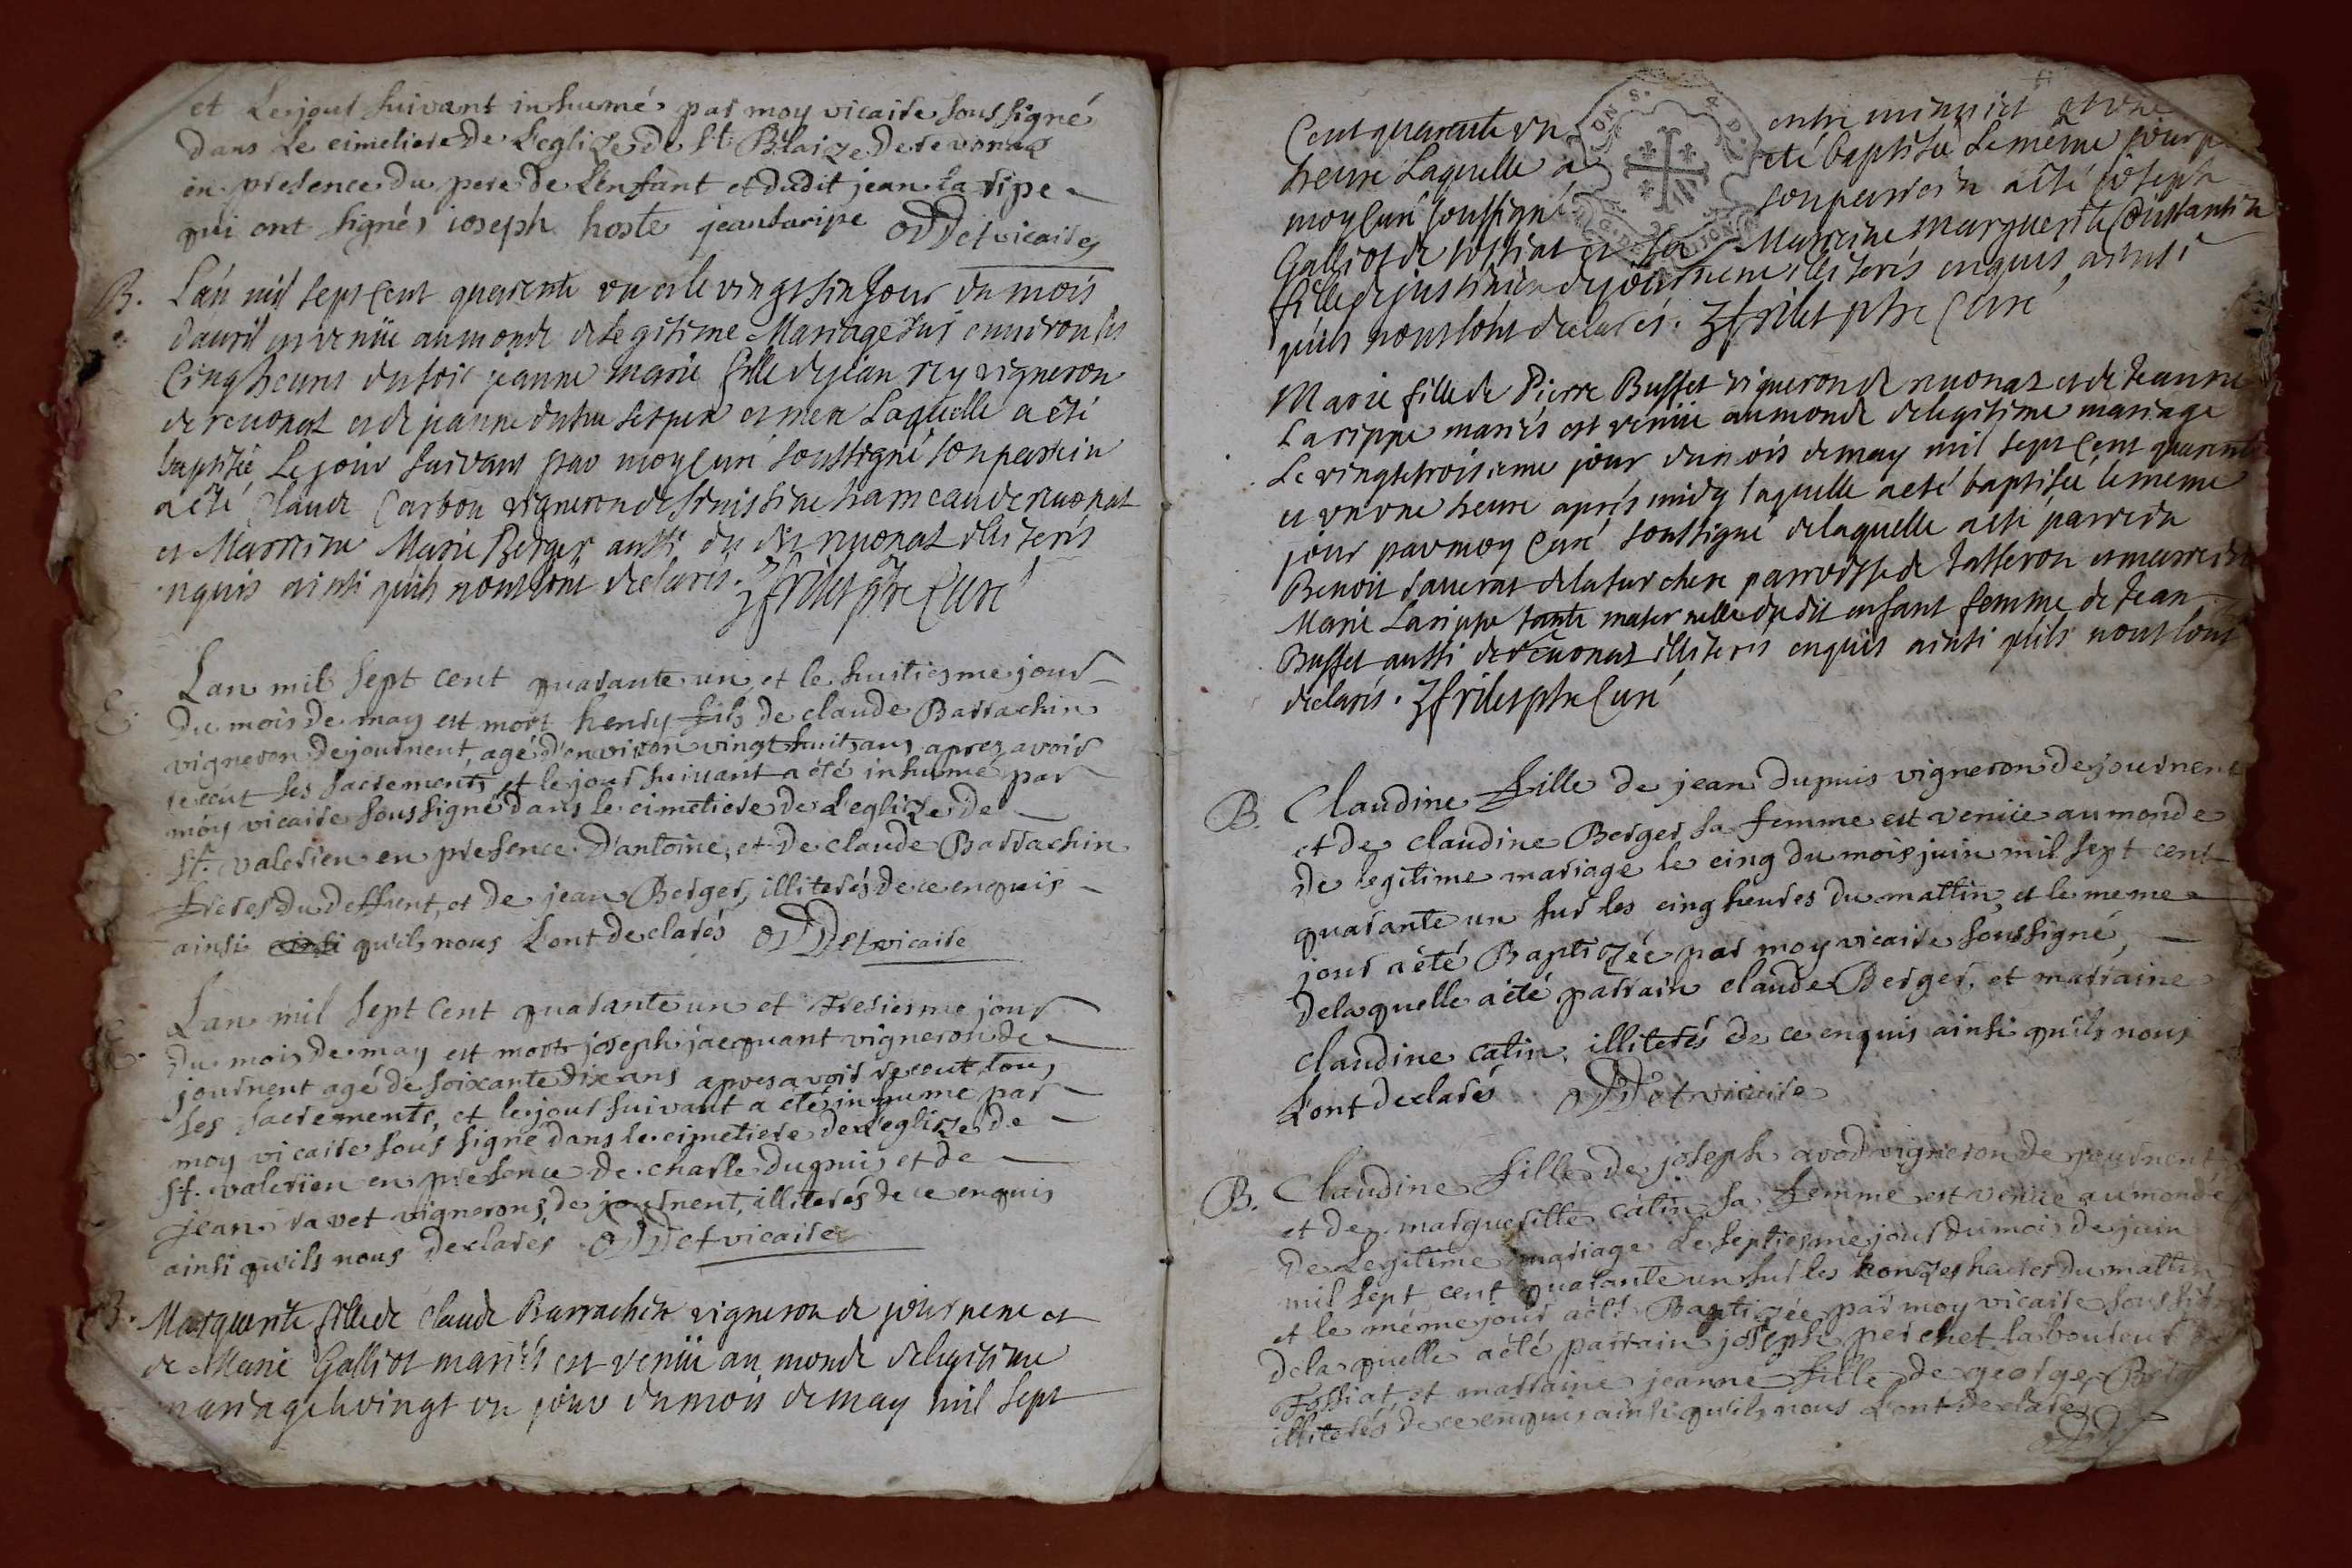 et Le jour suivant inhumé par moy vicaire soussigné
dans Le cimetiere de L'eglize de St Blaize de revonas
en presence du pere de L'enfant et dudit jean la ripe
qui ont signés joseph hoste jean laripe vicaire
B. L'an mil sept cent quarente un et le vingt six Jour du mois
d'avril est venüe au monde de legitime Mariage sur environ les
Cinq heures du soir jeanne marie fille de jean rey vigneron
de revonas et de jeanne ses pere et mere Laquelle a été
baptisée Le jour suivant par moy curé soussigné son parrein
a été Claude Carbon vigneron de hameau de revonas
et Marreine Marie Berger aussi du dit revonas illiterés
enquis ainsi qu'ils nous l'ont declarés. ptre Curé
E. Lan mil sept cent quarante un et le huitiesme jour
du mois de may est mort henry fils de claude Barrachin
vigneron de journent, agé d'environ vingt huit ans aprez avoir
receut ses sacrements et le jour suivant a été inhumé par
moy vicaire soussigné dans le cimetiere de L'eglize de
St. valerien en presence D'antoine, et De claude Barrachin
freres du deffunt, et de jean Berger, illiterés de ce enquis
ainsi qu'ils nous L'ont declarés vicaire
E. Lan mil sept cent quarante un et tresiesme jour
du mois de may est mort joseph jacquant vigneron de
journent agé de soixante dix ans apres avoir receut tous
ses sacrements, et le jour suivant a été inhumé par
moy vicaire sous signé dans le cimetiere de L'eglize de
St. valerien en presence de charle Dupuis et de
jean ravet vignerons de journent, illiterés de ce enquis
ainsi qu'ils nous declarés vicaire
B. Marguerite fille de Claude Barrachin vigneron de journent et
de Marie Galliot mariés est venüe au monde de legitime
mariage le vingt un jour du mois de may mil sept
Cent quarante un entre minuict et une
heure Laquelle a été baptisée Le même jour
moy Curé soussigné son parrein a été joseph
Galliot de tossiat et sa Marreine marguerite Constantin
fille de de journent illiterés enquis ainsi
qu'ils nous l'ont declarés. ptre Curé
Marie fille de Pierre Buffet vigneron de revonas et de Jeanne
Larippe mariés est venüe au monde de legitime mariage
Le vingt troisieme jour du mois de may mil sept cent quarante
et un une heure aprés midy laquelle a eté baptisée le meme
jour par moy Curé soussigné de laquelle a été parrein
Benoit de parroisse de Jasseron et marreine
Marie Larippe tante maternelle du dit enfant femme de Jean
Buffet aussi de revonas illiterés enquis ainsi qu'ils nous l'ont
declarés. ptre Curé
B. Claudine fille de jean Dupuis vigneron de journent
et de claudine Berger sa femme est venüe au monde
de legitime mariage le cinq du mois juin mil sept cent
quarante un sur les cinq heures du mattin, et le meme
jour a été Baptizée par moy vicaire soussigné,
de laquelle a été parrain claude Berger, et marraine
claudine catin, illiterés de ce enquis ainsi qu'ils nous
L'ont declarés vicaire
B. Claudine fille de joseph vigneron de journent
et de catin sa femme est venüe au monde
de Legitime mariage Le septiesme jour du mois de juin
mil sept cent quarante un sur les honzes heures du mattin
et le même jour a été Baptizée par moy vicaire soussigné
de la quelle a été parrain joseph perchet laboureur
Tossiat, et marraine jeanne fille de george
illiterés de ce enquis ainsi qu'ils nous L'ont declarés